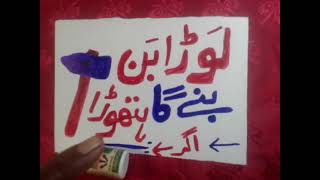 لَوڑا بَن
بنے گا ہتھوڑا
← اگر ←